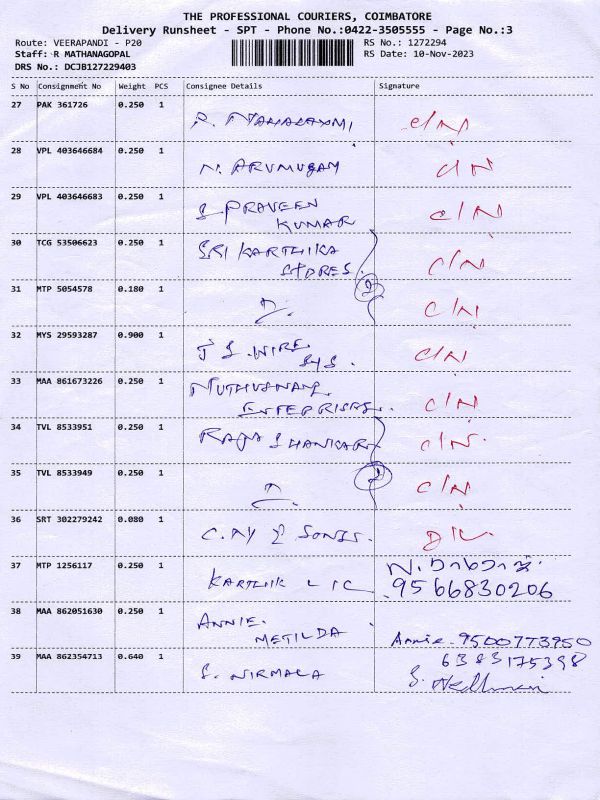 THE PROFESSIONAL COURIERS, COIMBATORE
Delivery Runsheet - SPT - Phone No.:0422-3505555 - Page No.:3
Route: VEERAPANDI - P20
RS No.: 1272294
Staff: R MATHANAGOPAL
RS Date: 10-Nov-2023
DRS No.: DCJB127229403
S No Consignment No Weight PCS Consignee Details Signature
27 PAK 361726 0.250 1 R. MAHALAXMI C/N
28 VPL 403646684 0.250 1 N. ARUMUGAM C/N
29 VPL 403646683 0.250 1 S PRAVEEN C/N
KUMAR
30 TCG 53506623 0.250 1 SRI KARTHIKA C/N
STORES.
31 MTP 5054578 0.180 1 C/N
32 MYS 29593287 0.900 1 J S. WIRE C/N
SYS.
33 MAA 861673226 0.250 1 C/N
ENTEPRISES.
34 TVL 8533951 0.250 1 RAJA SHANKAR C/N.
2
35 TVL 8533949 0.250 1 C/N
36 SRT 302279242 0.080 1 SONS. D/L.
37 MTP 1256117 0.250 1 KARTHIK LIC N.
9566830206
38 MAA 862051630 0.250 1 ANNIE.
METILDA Annie. 9500773950
39 MAA 862354713 0.640 1 S. NIRMALA 6383175398
S.